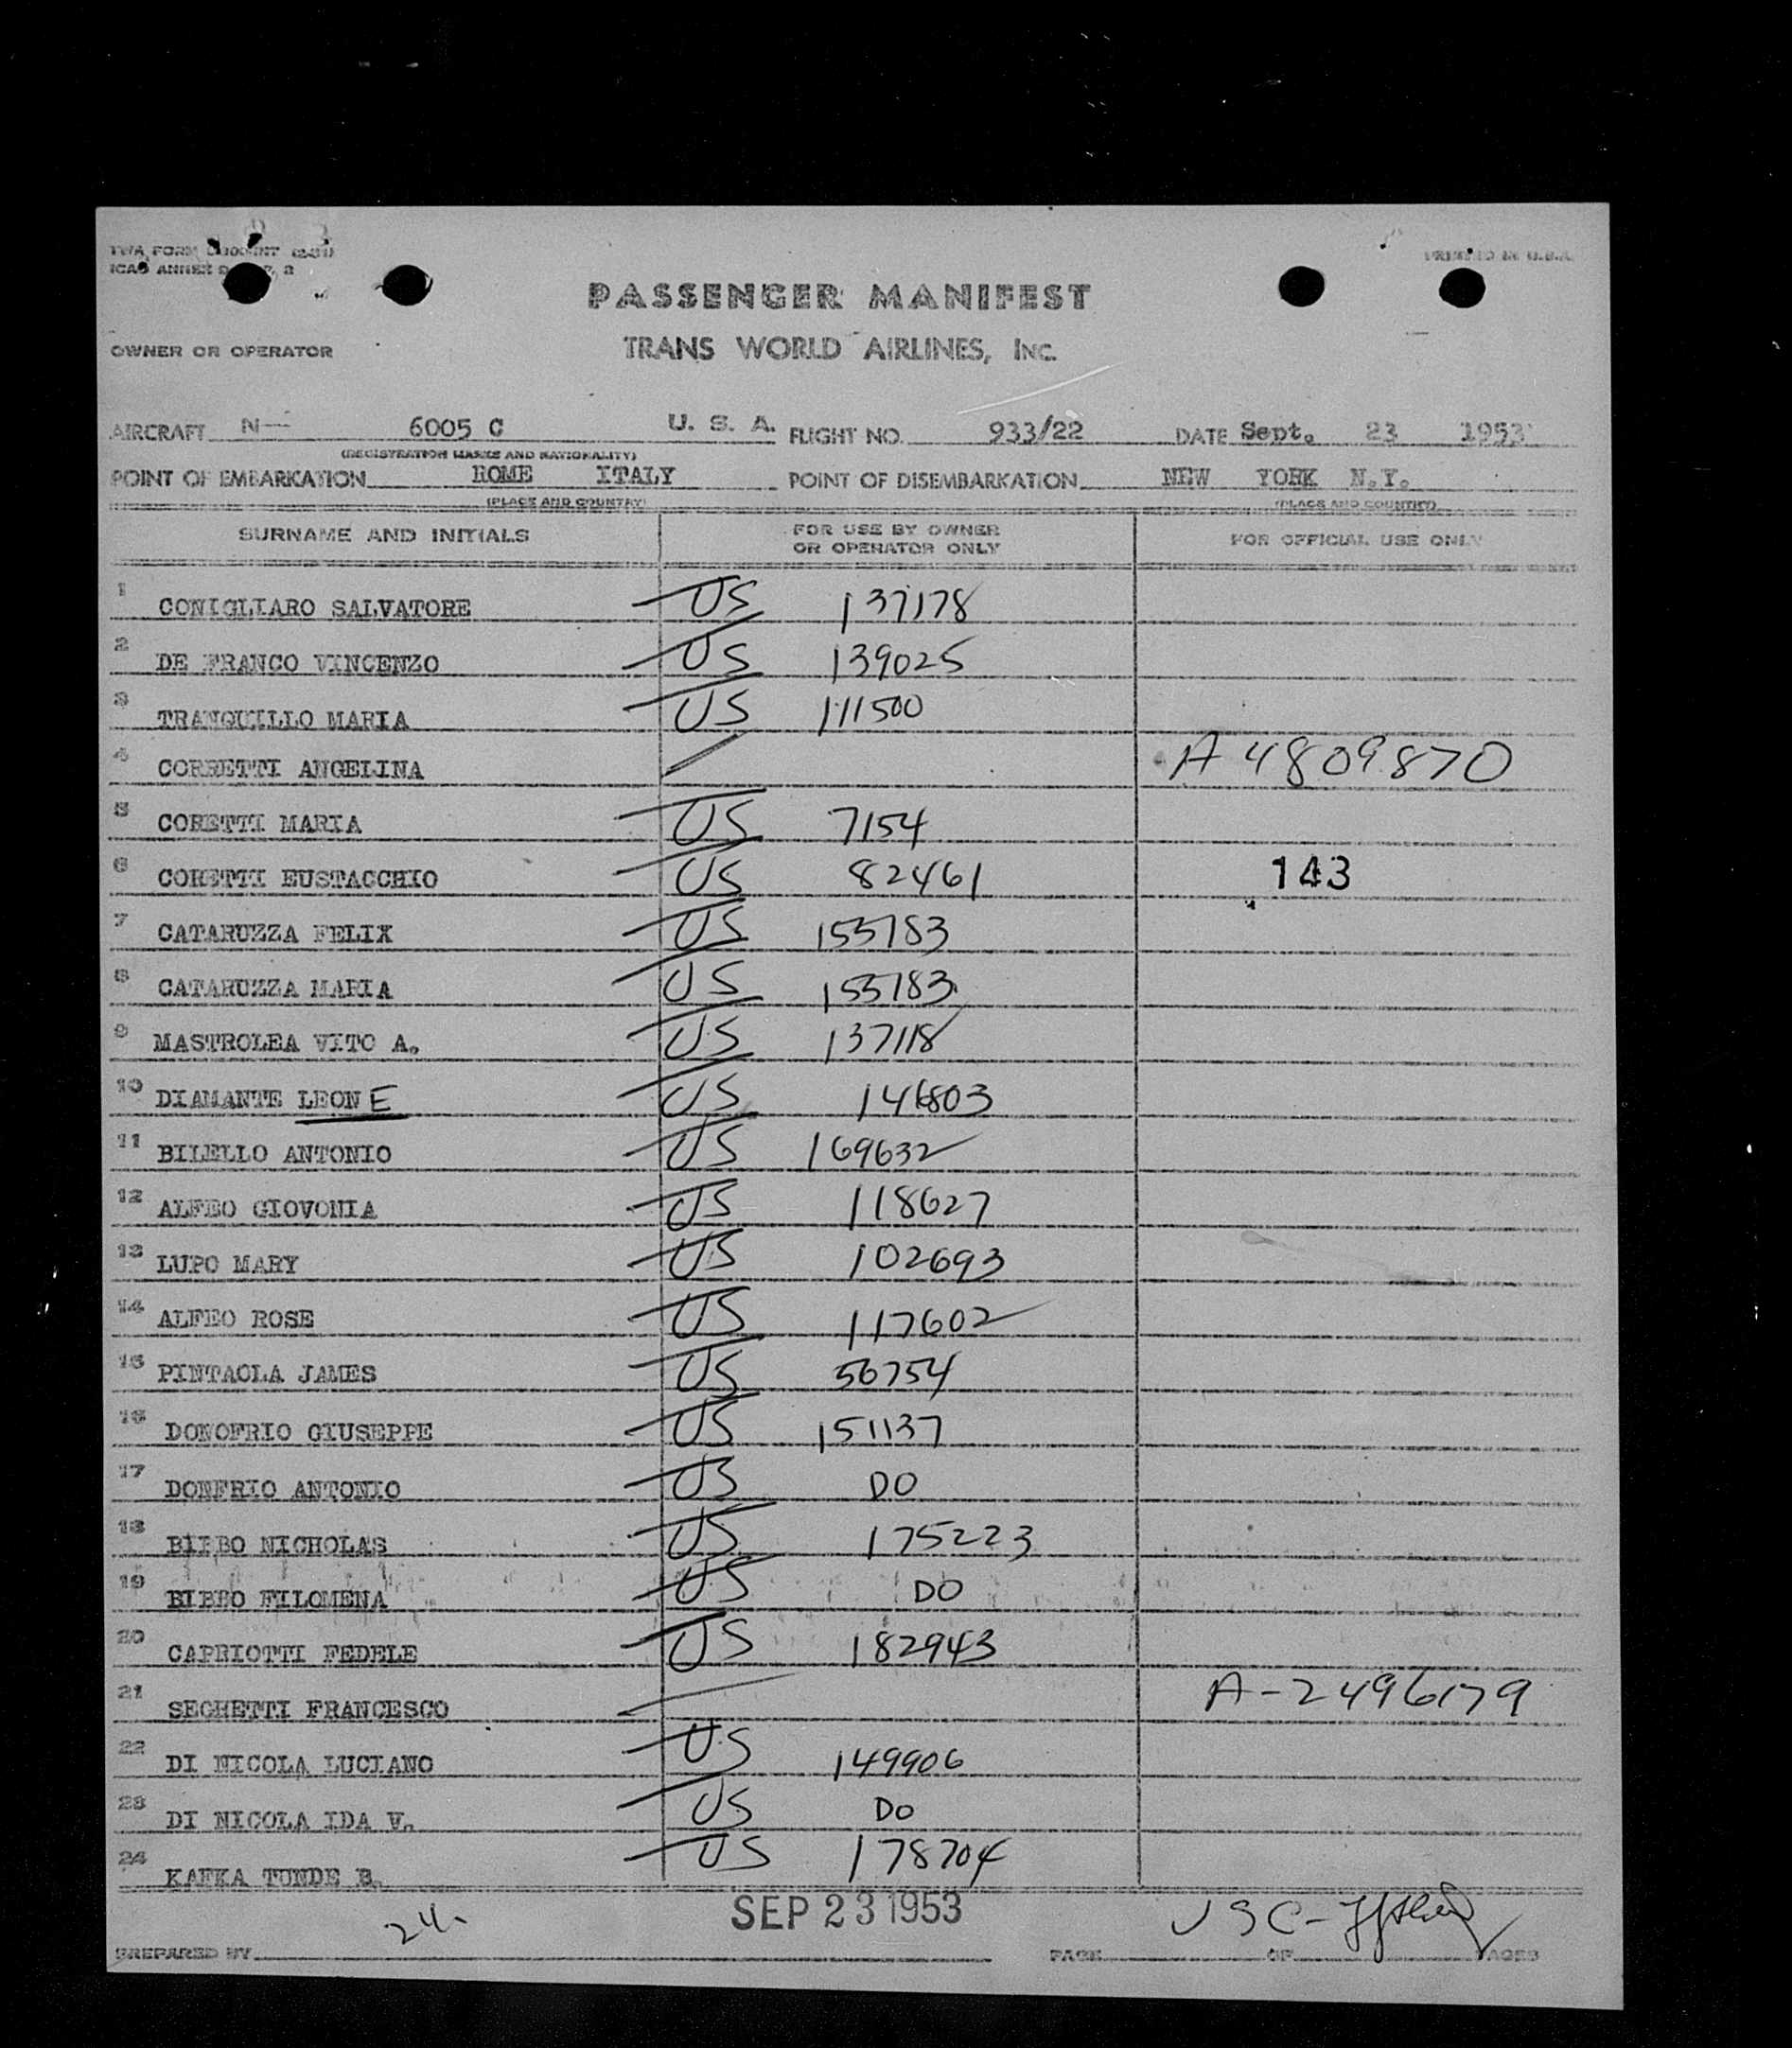 ICAO ANNEX 9
PRINTED IN U.S.A.
PASSENGER MANIFEST
OWNER OR OPERATOR TRANS WORLD AIRLINES, INC.
AIRCRAFT N 6005 C U. S. A. FLIGHT NO. 933/22 DATE Sept. 23 1953
(REGISTRATION MARKS AND NATIONALITY)
POINT OF EMBARKATION ROME ITALY POINT OF DISEMBARKATION NEW YORK N.Y.
(PLACE AND COUNTRY) (PLACE AND COUNTRY)
SURNAME AND INITIALS FOR USE BY OWNER OR OPERATOR ONLY FOR OFFICIAL USE ONLY
1 CONIGLIARO SALVATORE US 137178
2 DE FRANCO VINCENZO US 139025
3 TRANQUILLO MARIA US 111500
4 CORRETTI ANGELINA A 4809870
5 CORETTI MARIA US 7154
6 CORETTI EUSTACCHIO US 82461 143
7 CATARUZZA FELIX US 153783
8 CATARUZZA MARIA US 153783
9 MASTROLEA VITO A. US 137118
10 DIAMANTE LEONE US 146803
11 BILELLO ANTONIO US 169632
12 ALFEO GIOVONIA US 118627
13 LUPO MARY US 102693
14 ALFEO ROSE US 117602
15 PINTAOLA JAMES US 56754
16 DONOFRIO GIUSEPPE US 151137
17 DONFRIO ANTONIO US DO
18 BIBBO NICHOLAS US 175223
19 BIBBO FILOMENA US DO
20 CAPRIOTTI FEDELE US 182943
21 SEGHETTI FRANCESCO A-2496179
22 DI NICOLA LUCIANO US 149906
23 DI NICOLA IDA V. US DO
24 KAFKA TUNDE B. US 178704
24. SEP 23 1953 USC-
PREPARED BY PAGE OF PAGES